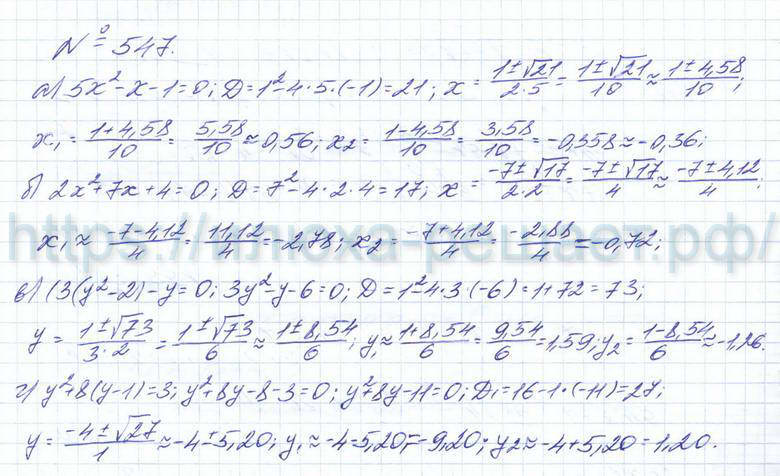 № 547.
а) 5x² - x - 1 = 0; D = 1² - 4·5·(-1) = 21; x = (1 ± √21)/(2·5) = (1 ± √21)/10 ≈ (1 ± 4,58)/10;
x₁ = (1 + 4,58)/10 = 5,58/10 ≈ 0,56; x₂ = (1 - 4,58)/10 = 3,58/10 = -0,358 ≈ -0,36;
б) 2x² + 7x + 4 = 0; D = 7² - 4·2·4 = 17; x = (-7 ± √17)/(2·2) = (-7 ± √17)/4 ≈ (-7 ± 4,12)/4;
https://илюха-решает.рф/
x₁ ≈ (-7 - 4,12)/4 = 11,12/4 = -2,78; x₂ = (-7 + 4,12)/4 = -2,88/4 = -0,72;
в) (3(y² - 2) - y = 0; 3y² - y - 6 = 0; D = 1² - 4·3·(-6) = 1 + 72 = 73;
y = (1 ± √73)/(3·2) = (1 ± √73)/6 ≈ (1 ± 8,54)/6; y₁ ≈ (1 + 8,54)/6 = 9,54/6 = 1,59; y₂ = (1 - 8,54)/6 ≈ -1,26.
г) y² + 8(y - 1) = 3; y² + 8y - 8 - 3 = 0; y² + 8y - 11 = 0; D₁ = 16 - 1·(-11) = 27;
y = (-4 ± √27)/1 ≈ -4 ± 5,20; y₁ ≈ -4 - 5,20 = -9,20; y₂ ≈ -4 + 5,20 = 1,20.